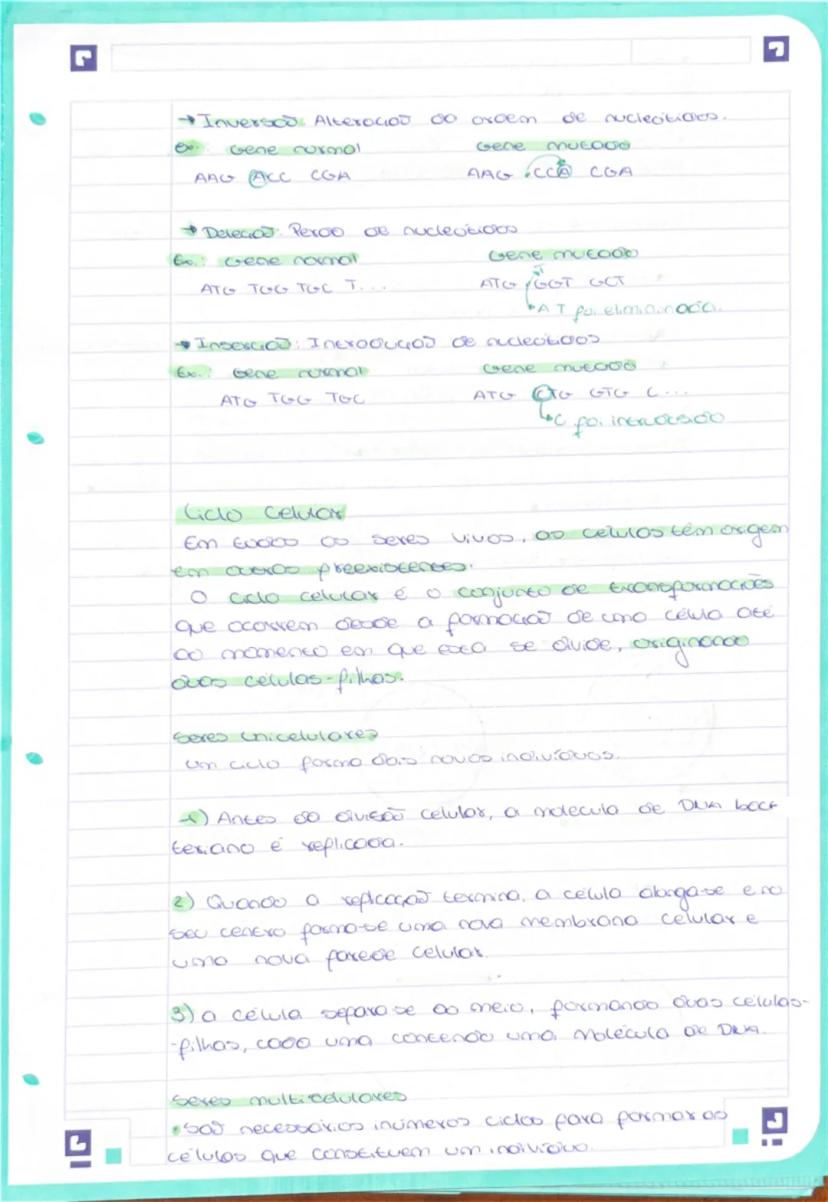 → Inversão: Alteração da ordem de nucleótidos.
Ex.: Gene normal Gene mutado
AAG ACC CGA AAG CCA CGA
→ Deleção: Perda de nucleótidos
Ex.: Gene normal Gene mutado
ATG TGG TGC T... ATG GGT GCT
T
↳ A T foi eliminada.
→ Inserção: Introdução de nucleótidos
Ex.: Gene normal Gene mutado
ATG TGG TGC ATG CTG GTG C...
↳ C foi introduzido
Ciclo Celular
Em todos os seres vivos, as células têm origem
em outras preexistentes.
O ciclo celular é o conjunto de transformações
que ocorrem desde a formação de uma célula até
ao momento em que esta se divide, originando
duas células-filhas.
Seres unicelulares
Um ciclo forma dois novos indivíduos.
1) Antes da divisão celular, a molécula de DNA bact
teriano é replicada.
2) Quando a replicação termina, a célula alarga-se e no
seu centro forma-se uma nova membrana celular e
uma nova parede celular.
3) a célula separa-se ao meio, formando duas células-
-filhas, cada uma contendo uma molécula de DNA.
Seres multicelulares
• São necessários inúmeros ciclos para formar as
células que constituem um indivíduo.